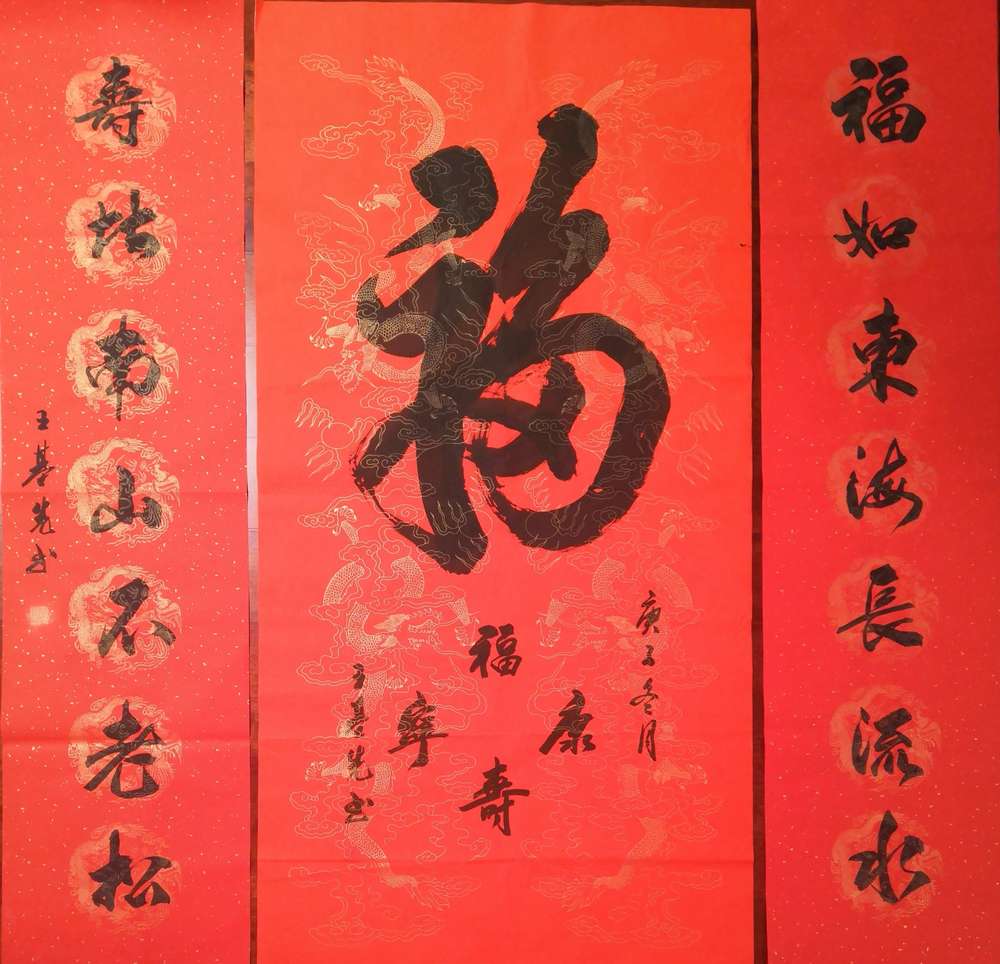 福如東海長流水
福
庚子冬月
福壽康寧
王基先书
壽比南山不老松
王基先书